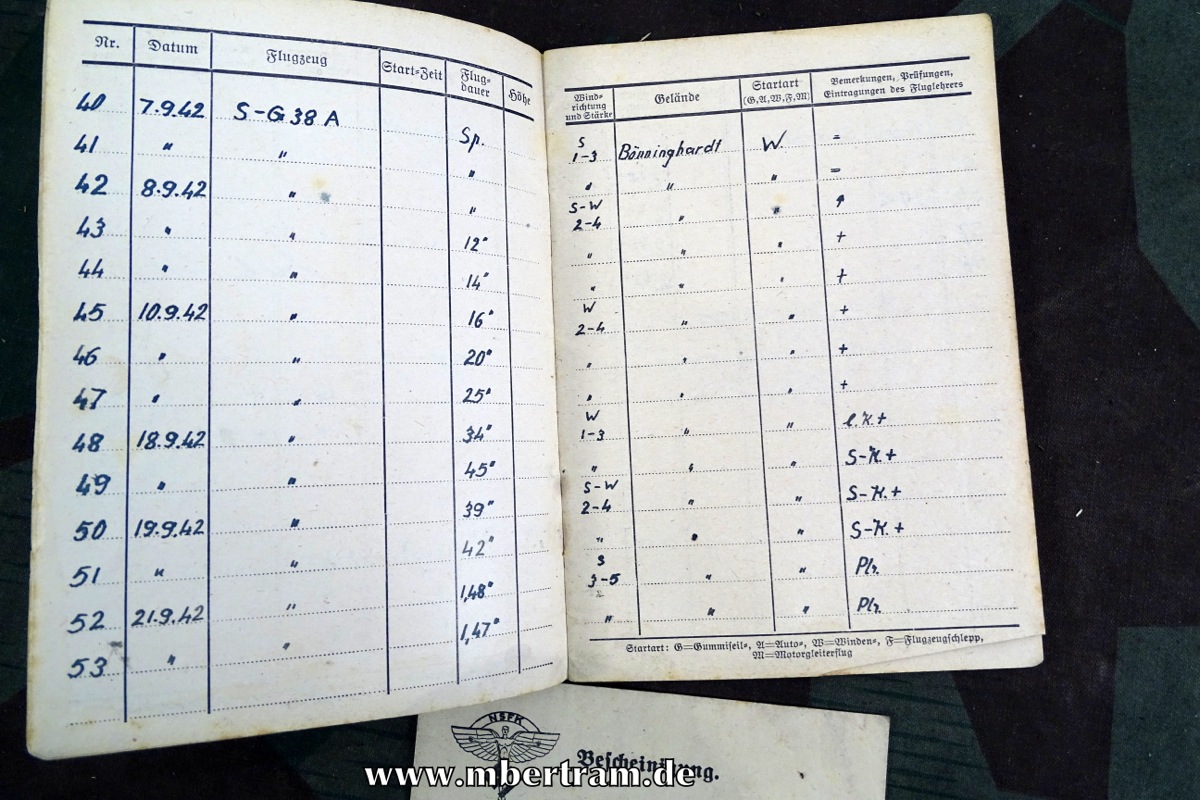 Nr. Datum Flugzeug Start-Zeit Flug-dauer Höhe
40 7.9.42 S-G 38 A Sp.
41 " " "
42 8.9.42 " "
43 " " 12"
44 " " 14"
45 10.9.42 " 16"
46 " " 20"
47 " " 25"
48 18.9.42 " 34"
49 " " 45"
50 19.9.42 " 39"
51 " " 42"
52 21.9.42 " 1,48"
53 " " 1,47"
Wind-richtung und Stärke Gelände Startart (G,A,W,F,M) Bemerkungen, Prüfungen, Eintragungen des Fluglehrers
S 1-3 Bönninghardt W. =
" " " =
S-W 2-4 " "
" " " +
" " " +
W 2-4 " " +
" " " +
" " " +
W 1-3 " " l.K+
" " " S-K+
S-W 2-4 " " S-K.+
" " " S-K.+
S 3-5 " "
" " "
Startart: G=Gummiseil-, A=Auto-, W=Winden-, F=Flugzeugschlepp,
M=Motorgleiterflug
NSFK
Bescheinigung.
www.mbertram.de